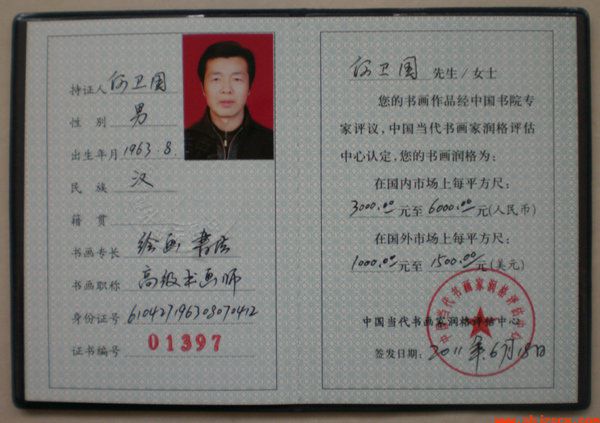 持证人 何卫国
性 别 男
出生年月 1963.8.
民 族 汉
籍 贯
书画专长 绘画 书法
书画职称 高级书画师
身份证号 610427196308070412
证书编号 01397
何卫国 先生/女士
您的书画作品经中国书院专
家评议,中国当代书画家润格评估
中心认定,您的书画润格为:
在国内市场上每平方尺:
3000.00元至 6000.00元(人民币)
在国外市场上每平方尺:
1000.00元至 1500.00元(美元)
中国当代书画家润格评估中心
签发日期: 2011年6月18日
中国当代书画家润格评估中心